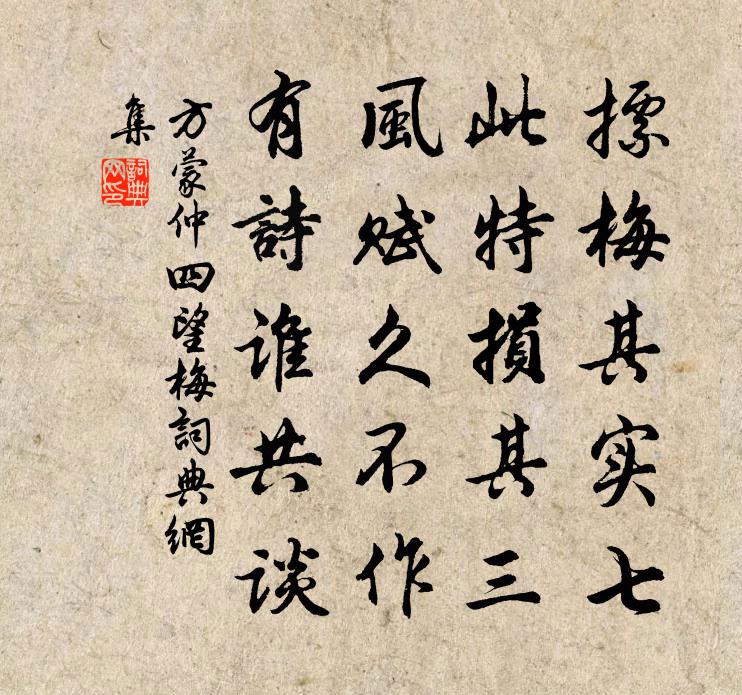 摽梅其实七
此特損其三
風赋久不作
有詩谁共谈
方蒙仲四望梅詞典網
集
詞典网印